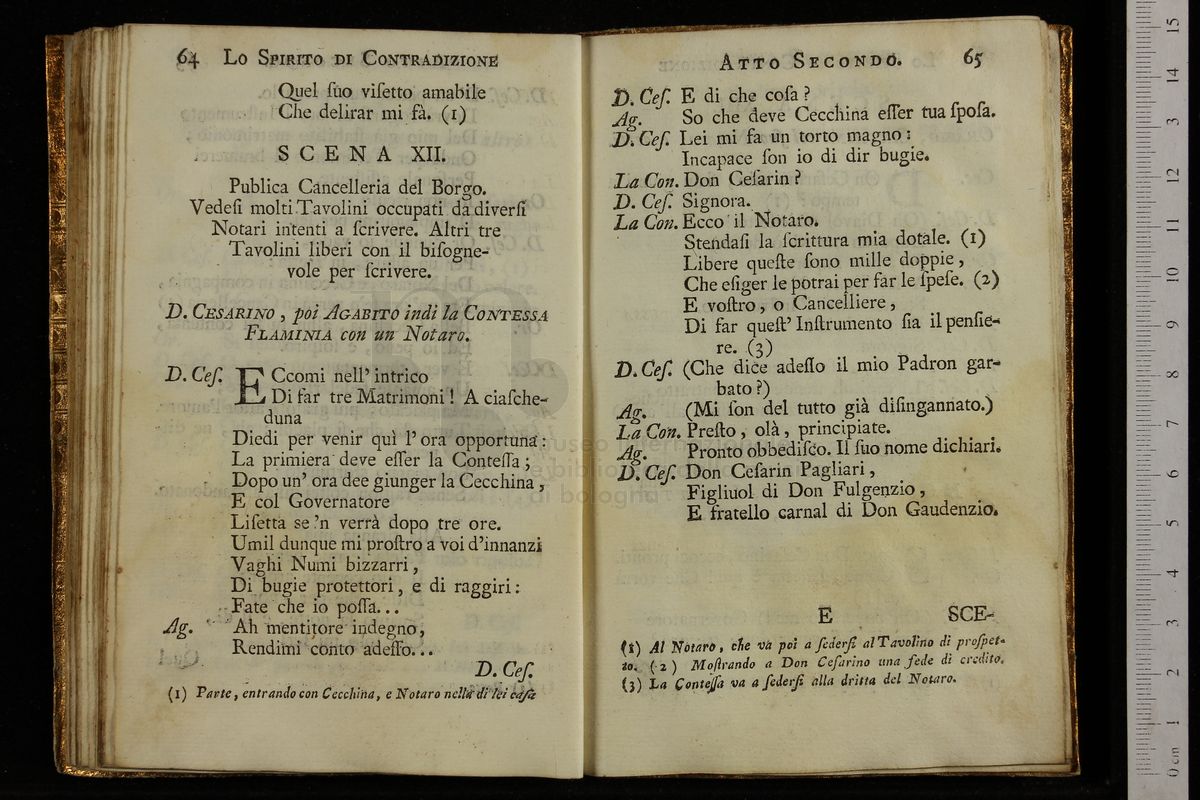 64 Lo Spirito di Contradizione
Quel ſuo viſetto amabile
Che delirar mi fà. (1)
SCENA XII.
Publica Cancelleria del Borgo.
Vedeſi molti Tavolini occupati da diverſi
Notari intenti a ſcrivere. Altri tre
Tavolini liberi con il biſogne-
vole per ſcrivere.
D. Cesarino, poi Agabito indi la Contessa
Flaminia con un Notaro.
D. Ceſ. ECcomi nell' intrico
Di far tre Matrimoni! A ciaſche-
duna
Diedi per venir quì l' ora opportuna:
La primiera deve eſſer la Conteſſa;
Dopo un' ora dee giunger la Cecchina,
E col Governatore
Liſetta se 'n verrà dopo tre ore.
Umil dunque mi proſtro a voi d'innanzi
Vaghi Numi bizzarri,
Di bugie protettori, e di raggiri:
Fate che io poſſa...
Ag. Ah mentitore indegno,
Rendimi conto adeſſo...
D. Ceſ.
(1) Parte, entrando con Cecchina, e Notaro nella di lei caſa
Atto Secondo. 65
D. Ceſ. E di che coſa?
Ag. So che deve Cecchina eſſer tua ſpoſa.
D. Ceſ. Lei mi fa un torto magno:
Incapace ſon io di dir bugie.
La Con. Don Ceſarin?
D. Ceſ. Signora.
La Con. Ecco il Notaro.
Stendaſi la ſcrittura mia dotale. (1)
Libere queſte ſono mille doppie,
Che eſiger le potrai per far le ſpeſe. (2)
E voſtro, o Cancelliere,
Di far queſt' Inſtrumento ſia il penſie-
re. (3)
D. Ceſ. (Che dice adeſſo il mio Padron gar-
bato?)
Ag. (Mi ſon del tutto già diſingannato.)
La Con. Preſto, olà, principiate.
Ag. Pronto obbediſco. Il ſuo nome dichiari.
D. Ceſ. Don Ceſarin Pagliari,
Figliuol di Don Fulgenzio,
E fratello carnal di Don Gaudenzio.
E SCE-
(1) Al Notaro, che va poi a ſederſi al Tavolino di proſpet-
to. (2) Moſtrando a Don Ceſarino una fede di credito.
(3) La Conteſſa va a ſederſi alla dritta del Notaro.
museo internazionale
e biblioteca
di bologna
0 cm 1 2 3 4 5 6 7 8 9 10 11 12 13 14 15